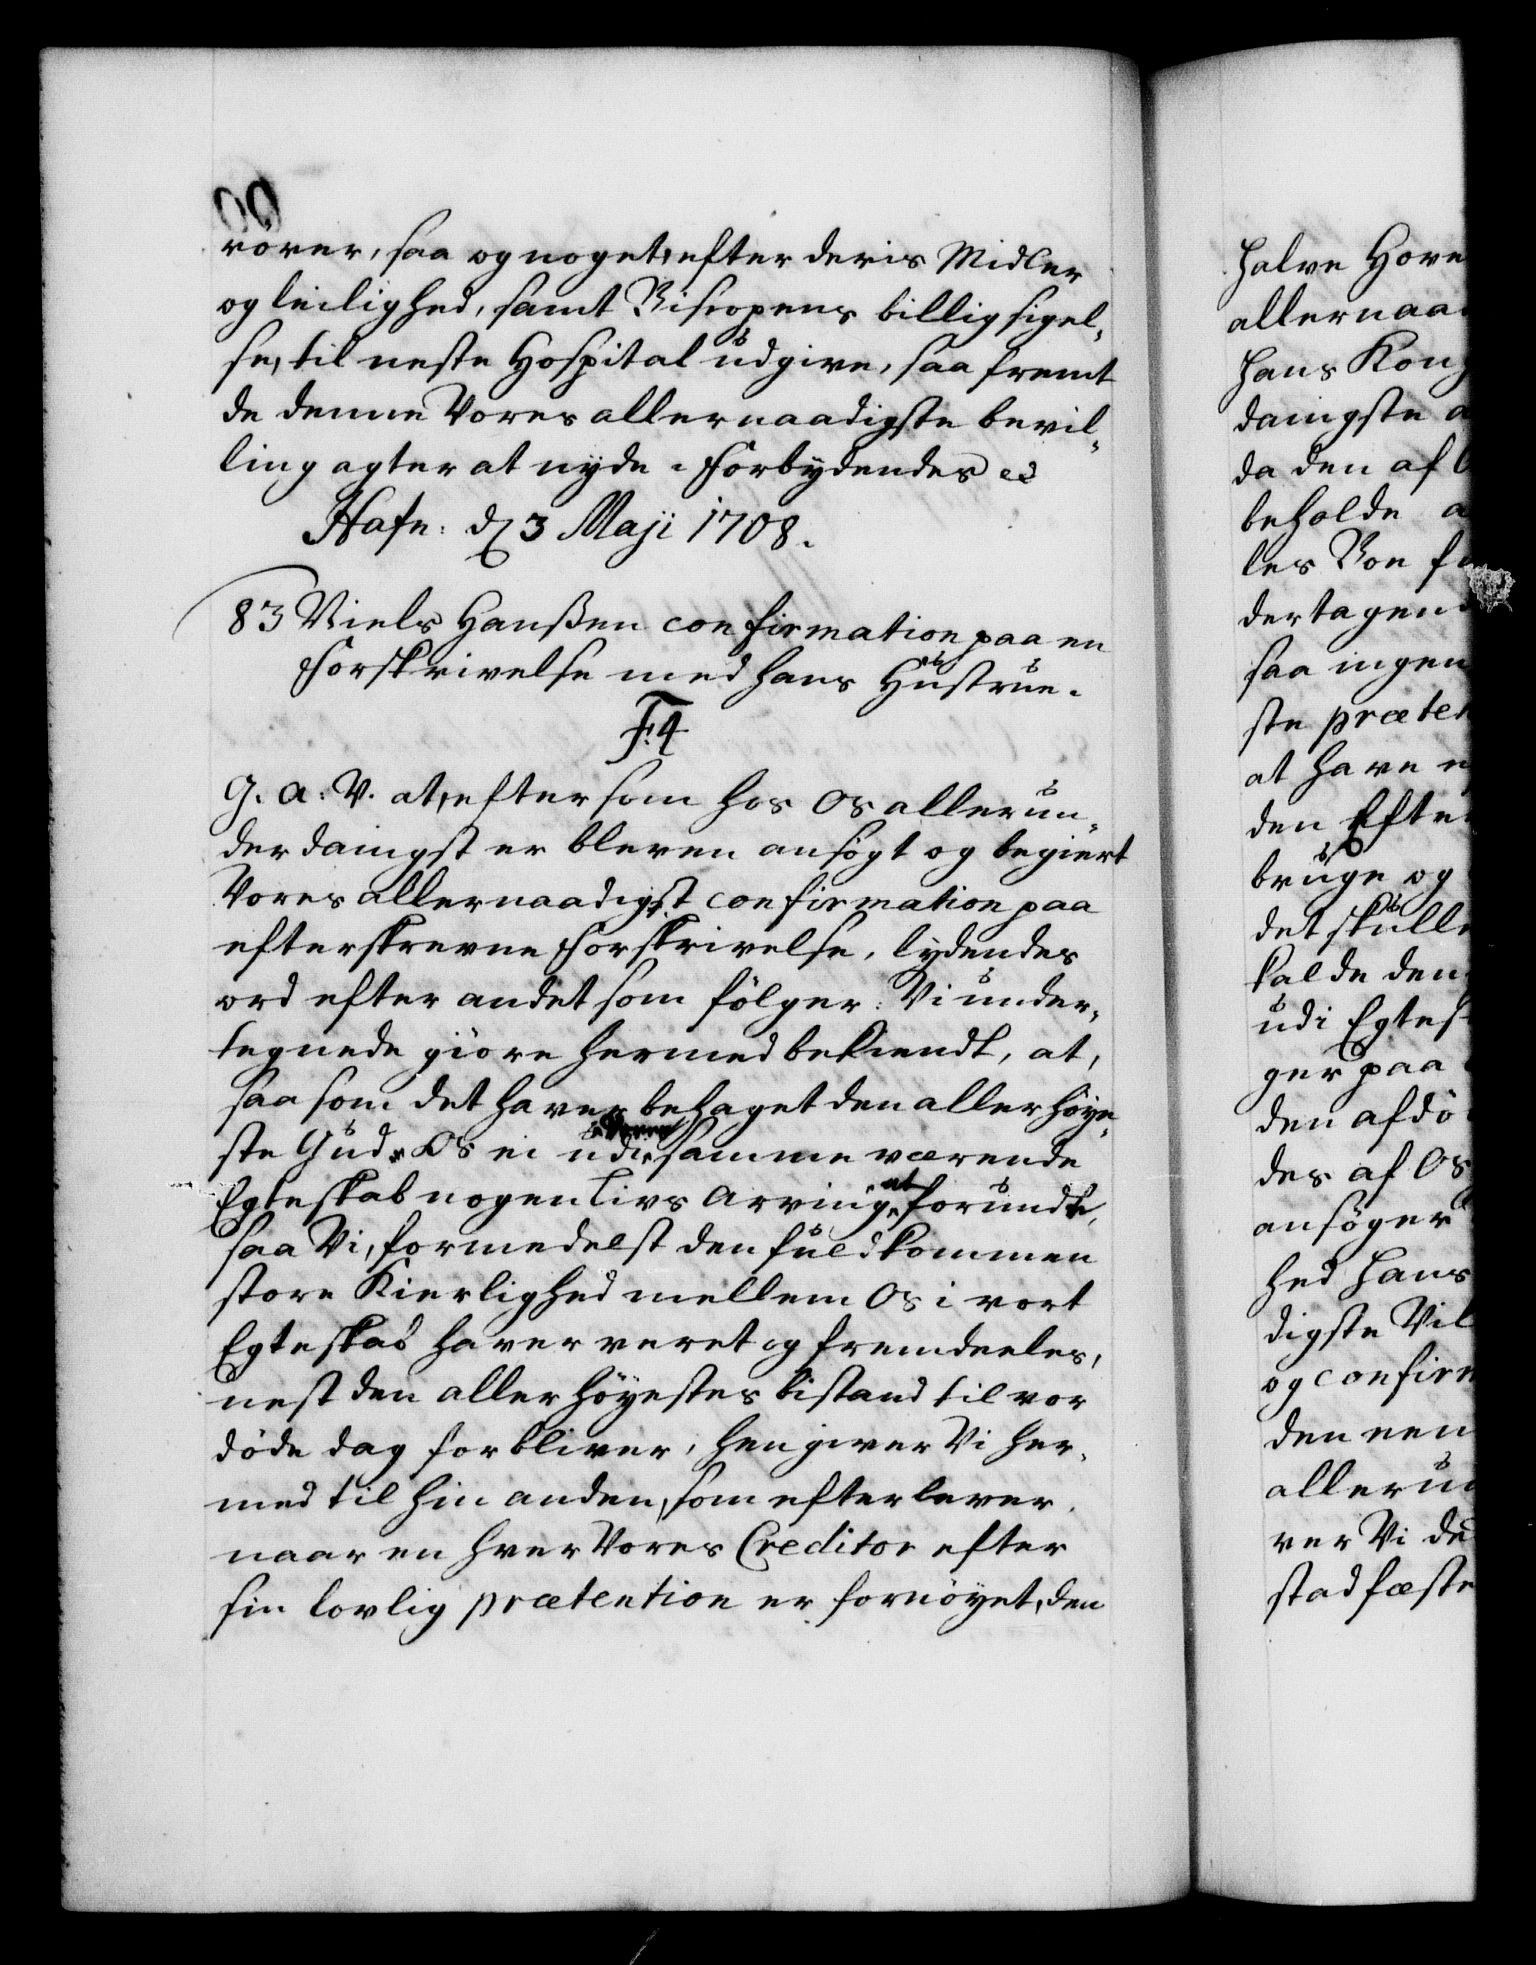 rörer, saa og noget, efter deris Midler
og leilighed, samt Biscopens billig sigel-
se, til neste Hospital udgive, saa fremt
de denne Vores allernaadigste bevil-
ling agter at nyde. Forbydendes &c
Hafn: d 3 Maji 1708.
83 Niels Hanßen confirmation paa en
Forskrivelse med hans Hustrue.
F:4
G. A: V. at, eftersom hos Os allerun-
derdanigst er bleven ansögt og begiert
Vores allernaadigst confirmation paa
efterskrevne Forskrivelse, lydendes
ord efter andet som fölger: Vi under-
tegnede giöre hermed bekiendt, at,
saa som det haver behaget den allerhöye-
ste Gud Os ei udi samme værende
Egteskab nogen Livs Arving at forundte,
saa Vi, formedelst den fuldkommen
store Kierlighed mellem Os i vort
Egteskab haver veret og fremdeeles,
nest den allerhöyestes bistand til vor
döde dag forbliver, hengiver Vi her-
med til hin anden, som efterlever,
naar en hver Vores Creditor efter
sin lovlig prætention er fornöyet, den
halve Hove
allernaa
hans Kong
danigste a
da den af
beholde a
les Boe
dertagen
saa ingen
ste præten
at have
den Efte
bruge og
det skulle
falde den
udi Egtes
ger paa
den afdö
des af Os
ansöger
hed hans
digste Vil
og confirm
den een
allerun
ver Vi de
stadfæste